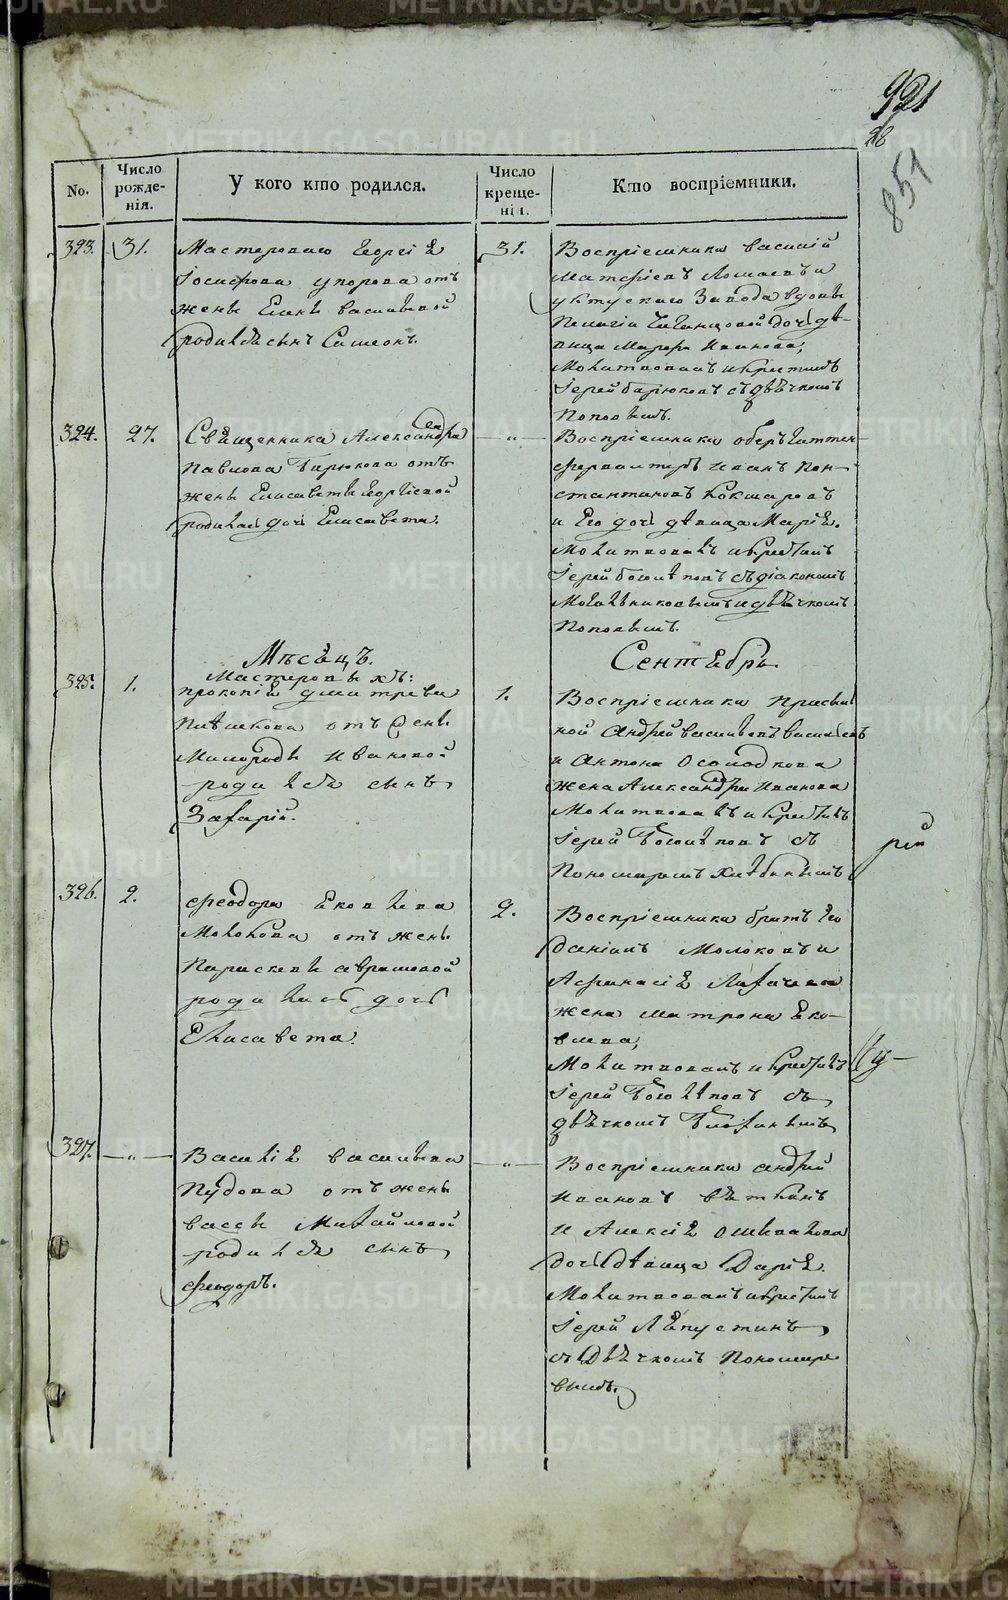 921
28
851
No.
Число рожде-нія.
У кого кто родился.
Число креще-нія.
Кто воспріемники.
323.
31.
Мастероваго Георгія
Іосифова упорова отъ
жены Елены васильевой
родился сынъ Симеонъ.
31.
Воспріемники василій
Матфіевъ и
уктускаго Завода вдовы
Пелагіи дочь дѣ-
вица Марфа Иванова,
Молитвовалъ и крестилъ
Іерей бирюковъ съ дьячкомъ
Поповымъ.
324.
27.
Священника Александра
Павлова Бирюкова отъ
жены Елисаветы Георгіевой
родилась дочь Елисавета.
„
Воспріемники оберъ гиттен-
фервалтеръ Иванъ Кон-
стантиновъ Кокшаровъ
и Его дочь дѣвица Марія.
Молитвовалъ и крестилъ
Іерей боголѣповъ съ діакономъ
и дьячкомъ
Поповымъ.
Мѣсяцъ.
Сентябрь
325.
1.
Мастеровыхъ:
прокопія дмитрева
Пѣшкова отъ жены
Иванової
родился сынъ
Захарій.
1.
Воспріемники
Андрей васильевъ
и Антона Осолодкова
жена Александра Иванова
Молитвовалъ и крестилъ
Іерей Боголѣповъ съ
Пономаремъ Хлѣбинымъ
рій
326.
2.
Феодора Яковлева
Молокова отъ жены
Параскевы авраамовой
родилась дочь
Елисавета.
2.
Воспріемники братъ Его
Даніилъ Молоковъ и
Афанасія Лихачева
жена Матрона Яко-
влева,
Молитвовалъ и крестилъ
Іерей Боголѣповъ съ
дьячкомъ
327.
„
Василія васильева
Пудова отъ жены
вассы Михайловой
родился сынъ
Феодоръ.
„
Воспріемники андрей
Ивановъ вяткинъ
и Алексія
дочь дѣвица Дарія.
Молитвовалъ и крестилъ
Іерей Ляпустинъ
съ Дьячкомъ Пономаре
вымъ.
METRIKI.GASO-URAL.RU